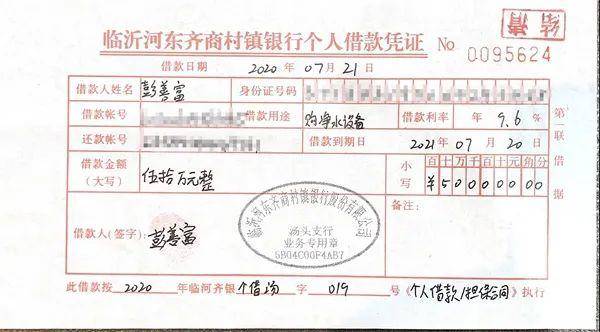 结清
临沂河东齐商村镇银行个人借款凭证 No 0095624
借款日期 2020 年 07 月 21 日
借款人姓名 彭善富 身份证号码
借款帐号 借款用途 购净水设备 借款利率 年 9.6 %
还款帐号 借款到期日 2021 年 07 月 20 日
借款金额(大写) 伍拾万元整 小写 百十万千百十元角分 ¥50000000
借款人(签字): 彭善富
临沂河东齐商村镇银行股份有限公司
汤头支行
业务专用章
5B04C00F4AB7
备注:
第二联 借据
此借款按 2020 年临河齐银 个借汤 字 019 号《个人借款/担保合同》执行